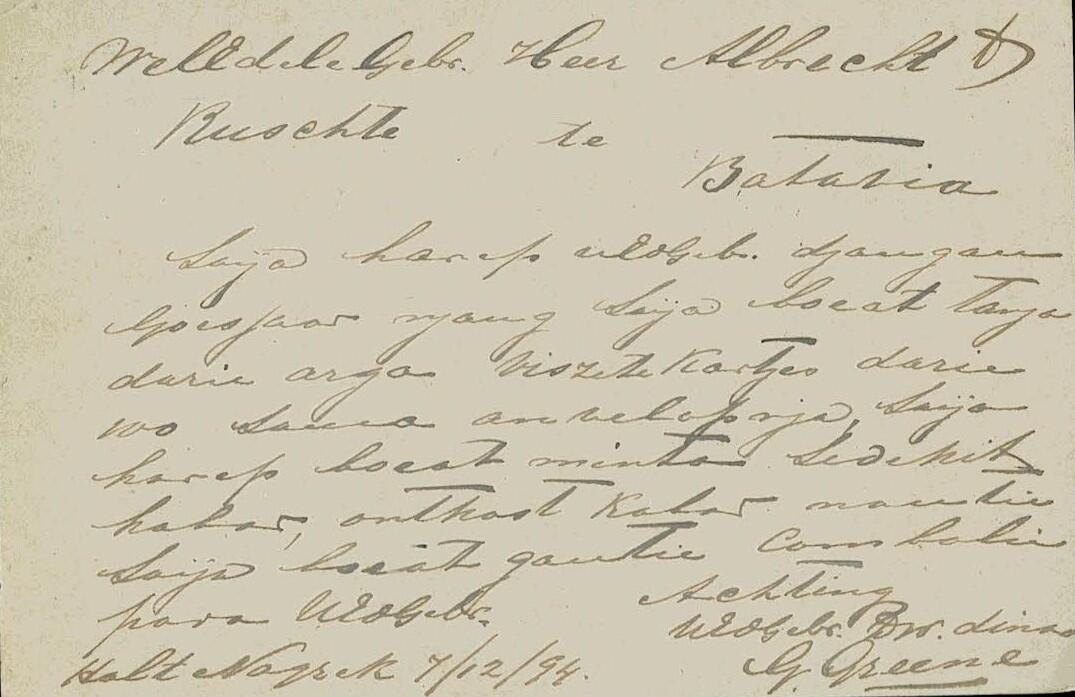 WelEdeleGebr. Heer Albrecht &
Ruschte te
Batavia
Saija harep UEdGeb. djangan
Goesaar njang Saija boeat tanja
darie arga Viszete Kartjes darie
100 sama anvelopnja, Saija
harep boeat minta Sedikit
kabar, onthost Kabar nantie
Saija boeat gantie combalie
para UEdGebr.
Achting
UEdGebr. Dw. dinar
G Greene
Halt Nagrek 7/12/94.